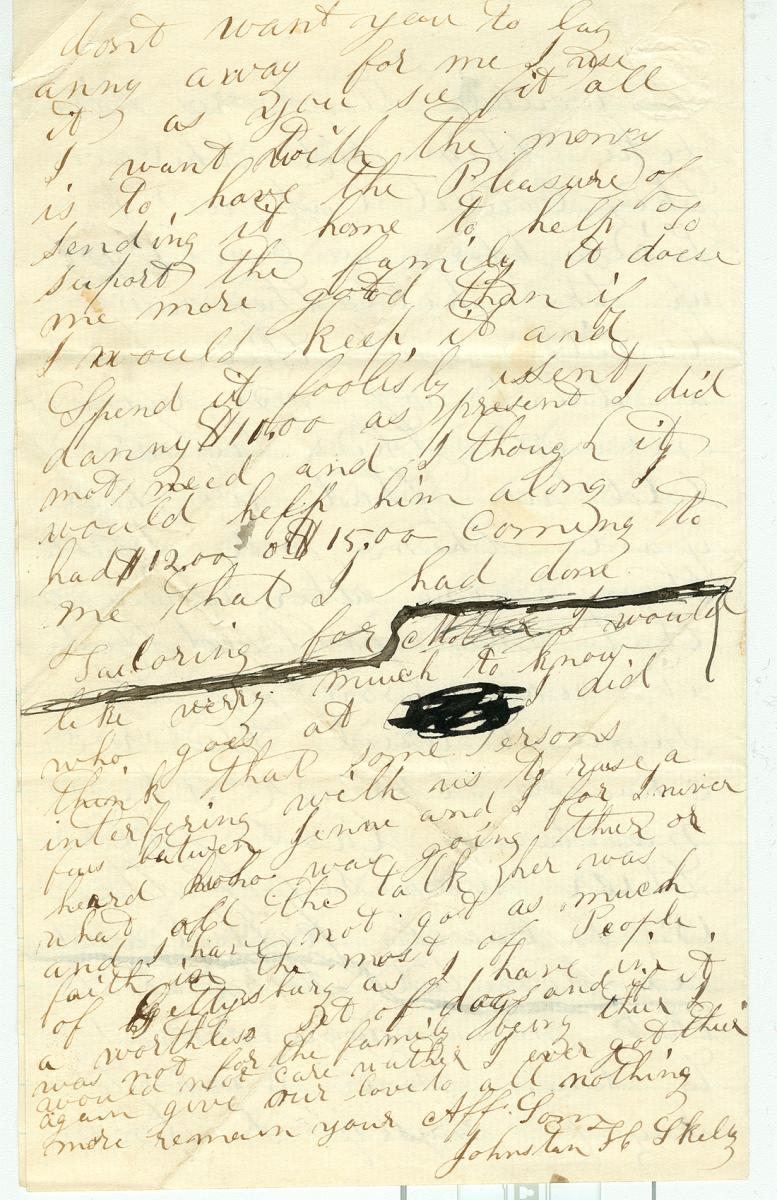 dont want you to lay
anny away for me I use
it as you see fit all
I want with the money
is to have the Pleasure of
sending it home to help to
suport the family it doese
me more good than if
I would keep it and
Spend it foolisly I sent
danny $10.00 as present I did
not need and I though it
would help him along I
had $12.00 or $15.00 coming to
me that I had done
Tailoring for Mother I would
like verry much to know
who goes at I did
think that some Persons
interfering with us to raise a
fus between Jenne and I for I never
heard who was going thier or
what all the talk ther was
and I have not got as much
faith in the most of People
of Gettysburg as I have in
a worthless set of dogs and if it
was not for the family being thier I
would not care wather I ever got thier
again give my love to all nothing
more remain your Aff. Son
Johnston H Skelly